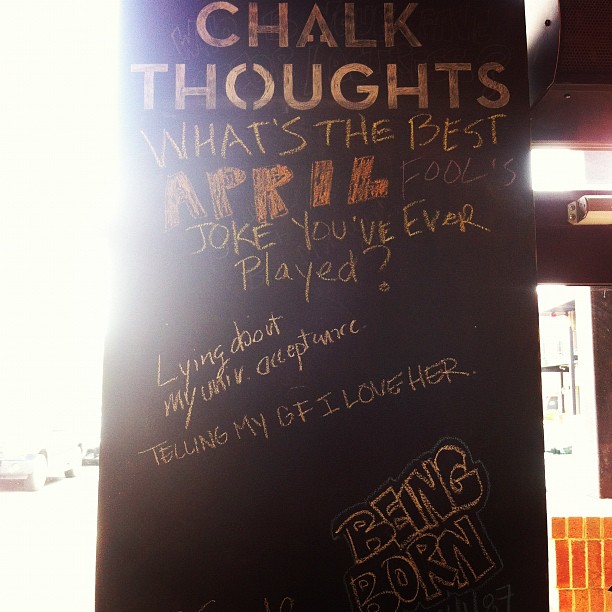 CHALK
THOUGHTS
WHAT'S THE BEST
APRIL FOOL'S
JOKE YOU'VE EVER
Played?
Lying about
my univ. acceptance.
TELLING MY GF I LOVE HER.
BEING
BORN